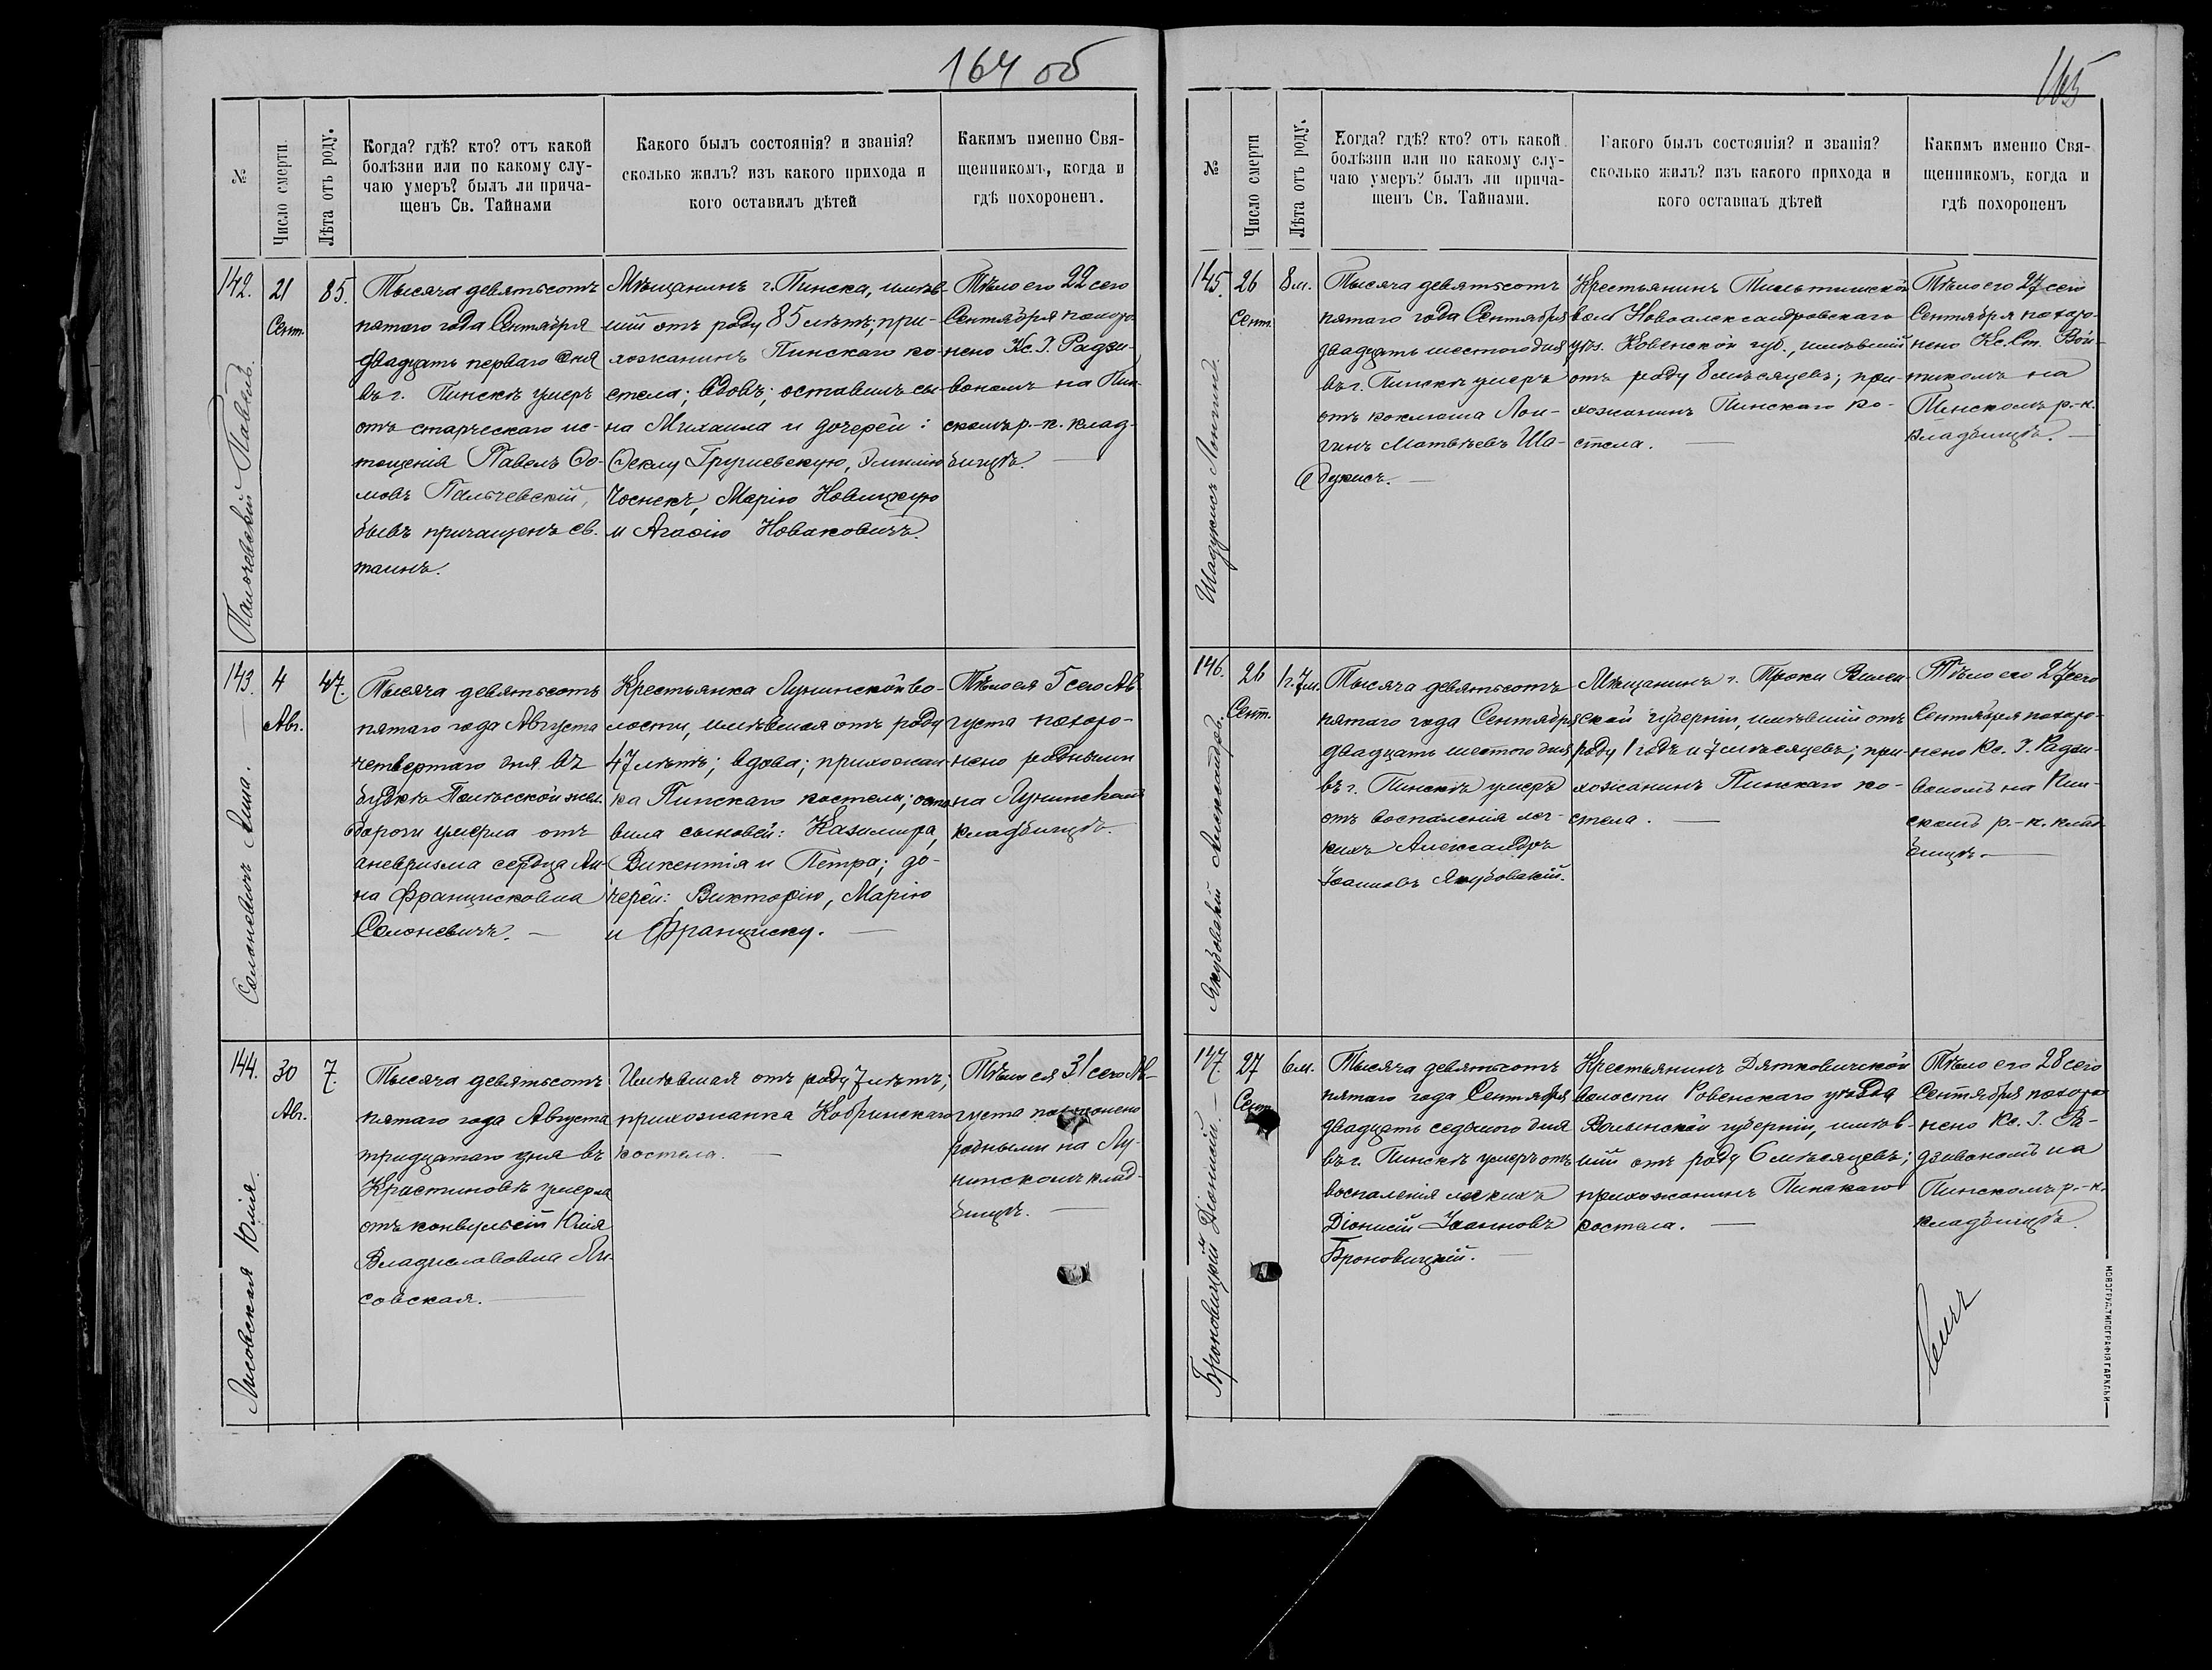 164 об
№
Число смерти.
Лѣта отъ роду.
Когда? гдѣ? кто? отъ какой
болѣзни или по какому слу-
чаю умеръ? былъ ли прича-
щенъ Св. Тайнами
Какого былъ состоянія? и званія?
сколько жилъ? изъ какого прихода и
кого оставилъ дѣтей
Каким­ъ именно Свя-
щенникомъ, когда и
гдѣ похороненъ.
142.
Павелъ
21
Сент.
85.
Тысяча девятьсотъ
пятаго года Сентября
двадцать перваго дня
въ г. Пинскѣ умеръ
отъ старческаго ис-
тощенія Павелъ Ѳо-
мовъ Пальчевскій,
бывъ причащенъ св.
таинъ.
Мѣщанинъ г. Пинска, имѣв-
шій отъ роду 85 лѣтъ; при-
хожанинъ Пинскаго ко-
стела; вдовъ; оставилъ сы-
на Михаила и дочерей:
Ѳеклу Грушевскую, Эмилію
Марію Новицкую
и Агафію Новаковичъ.
Тѣло его 22 сего
Сентября похоро-
нено Кс. І. Радзи-
вономъ на Пин-
скомъ р.-к. клад-
бищѣ.
143.
Солоневичъ Анна.
4
Авг.
47.
Тысяча девятьсотъ
пятаго года Августа
четвертаго дня въ
будкѣ Полѣсской жел.
дороги умерла отъ
аневризма сердца Ан-
на Францисковна
Солоневичъ.
Крестьянка Лунинской во-
лости, имѣвшая отъ роду
47 лѣтъ; вдова; прихожан-
ка Пинскаго костела; оста-
вила сыновей: Казимира,
Викентія и Петра; до-
черей: Викторію, Марію
и Франциску.
Тѣло ея 5 сего Ав-
густа похоро-
нено родными
на Лунинскомъ
кладбищѣ.
144.
Лисовская Юлія.
30
Авг.
7.
Тысяча девятьсотъ
пятаго года Августа
тридцатаго дня въ
Крастиновѣ умерла
отъ конвульсій Юлія
Владиславовна Ли-
совская.
Имѣвшая отъ роду 7 лѣтъ;
прихожанка Кобринскаго
костела.
Тѣло ея 31 сего Ав-
густа похоронено
родными на Лу-
нинскомъ клад-
бищѣ.
165
№
Число смерти
Лѣта отъ роду.
Когда? гдѣ? кто? отъ какой
болѣзни или по какому слу-
чаю умеръ? былъ ли прича-
щенъ Св. Тайнами.
Какого былъ состоянія? и званія?
сколько жилъ? изъ какого прихода и
кого оставилъ дѣтей
Какимъ именно Свя-
щенникомъ, когда и
гдѣ похороненъ
145.
Шадукисъ Лонгинъ.
26
Сент.
8 м.
Тысяча девятьсотъ
пятаго года Сентября
двадцать шестого дня
въ г. Пинскѣ умеръ
отъ коклюша Лон-
гинъ Матвѣевъ Ша-
дукисъ.
Крестьянинъ
вол. Новоалександровскаго
уѣз. Ковенской губ., имѣвшій
отъ роду 8 мѣсяцевъ; при-
хожанинъ Пинскаго ко-
стела.
Тѣло его 27 сего
Сентября похоро-
нено Кс. Ст. Вой-
тикомъ на
Пинскомъ р.-к.
кладбищѣ.
146.
Якубовскій Александръ.
26
Сент.
1 г. 7 м.
Тысяча девятьсотъ
пятаго года Сентября
двадцать шестого дня
въ г. Пинскѣ умеръ
отъ воспаленія лег-
кихъ Александръ
Іоанновъ Якубовскій.
Мѣщанинъ г. Троки Вилен-
ской губерніи, имѣвшій отъ
роду 1 годъ и 7 мѣсяцевъ; при-
хожанинъ Пинскаго ко-
стела.
Тѣло его 27 сего
Сентября похоро-
нено Кс. І. Радзи-
вономъ на Пин-
скомъ р.-к. клад-
бищѣ.
147.
Броновицкій Діонисій.
27
Сент.
6 м.
Тысяча девятьсотъ
пятаго года Сентября
двадцать седьмого дня
въ г. Пинскѣ умеръ отъ
воспаленія легкихъ
Діонисій Іоанновъ
Броновицкій.
Крестьянинъ Дятковичской
волости Ровенскаго уѣзда
Волынской губерніи, имѣв-
шій отъ роду 6 мѣсяцевъ;
прихожанинъ Пинскаго
костела.
Тѣло его 28 сего
Сентября похоро-
нено Кс. І. Ра-
дзивономъ на
Пинскомъ р.-к.
кладбищѣ.